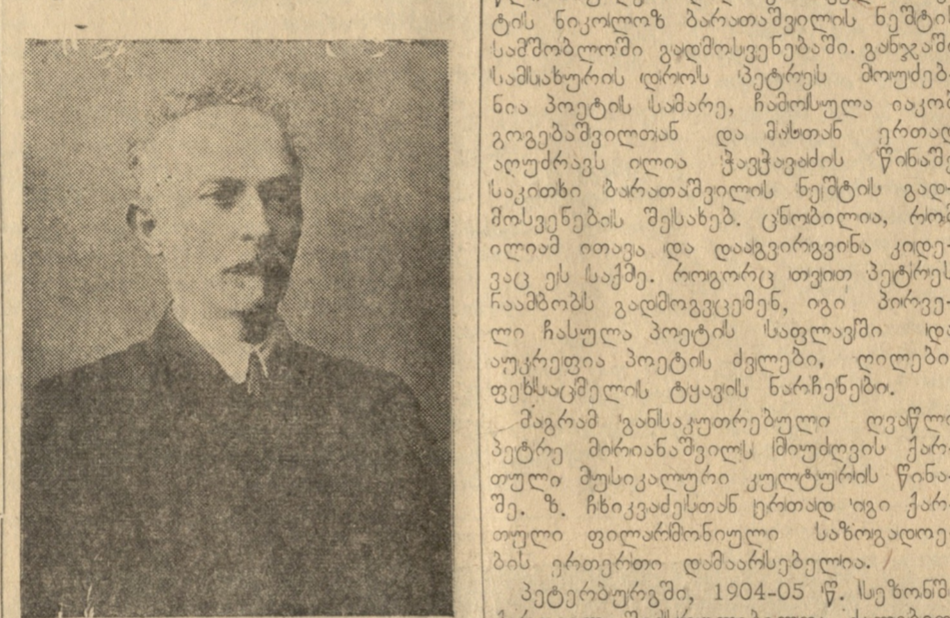 ტის ნიკოლოზ ბარათაშვილის ნეშტის
სამშობლოში გადმოსვენებაში. განჯაში
სამსახურის დროს პეტრეს მოუძებ
ნია პოეტის სამარე, ჩამოსულა იაკობ
გოგებაშვილთან და მასთან ერთად
აღუძრავს ილია ჭავჭავაძის წინაშე
საკითხი ბარათაშვილის ნეშტის გად-
მოსვენების შესახებ. ცნობილია, რომ
ილიამ ითავა და დააგვირგვინა კიდე-
ვაც ეს საქმე. როგორც თვით პეტრეს
ნაამბობს გადმოგვცემენ, იგი პირვე-
ლი ჩასულა პოეტის საფლავში და
აუკრეფია პოეტის ძვლები, ღილები
ფეხსაცმელის ტყავის ნარჩენები.
მაგრამ განსაკუთრებული ღვაწლი
პეტრე მირიანაშვილს მიუძღვის ქარ-
თული მუსიკალური კულტურის წინა-
შე. ზ. ჩხიკვაძესთან ერთად იგი ქარ-
თული ფილარმონიული საზოგადოე-
ბის ერთერთი დამაარსებელია.
პეტერბურგში, 1904-05 წ. სეზონში